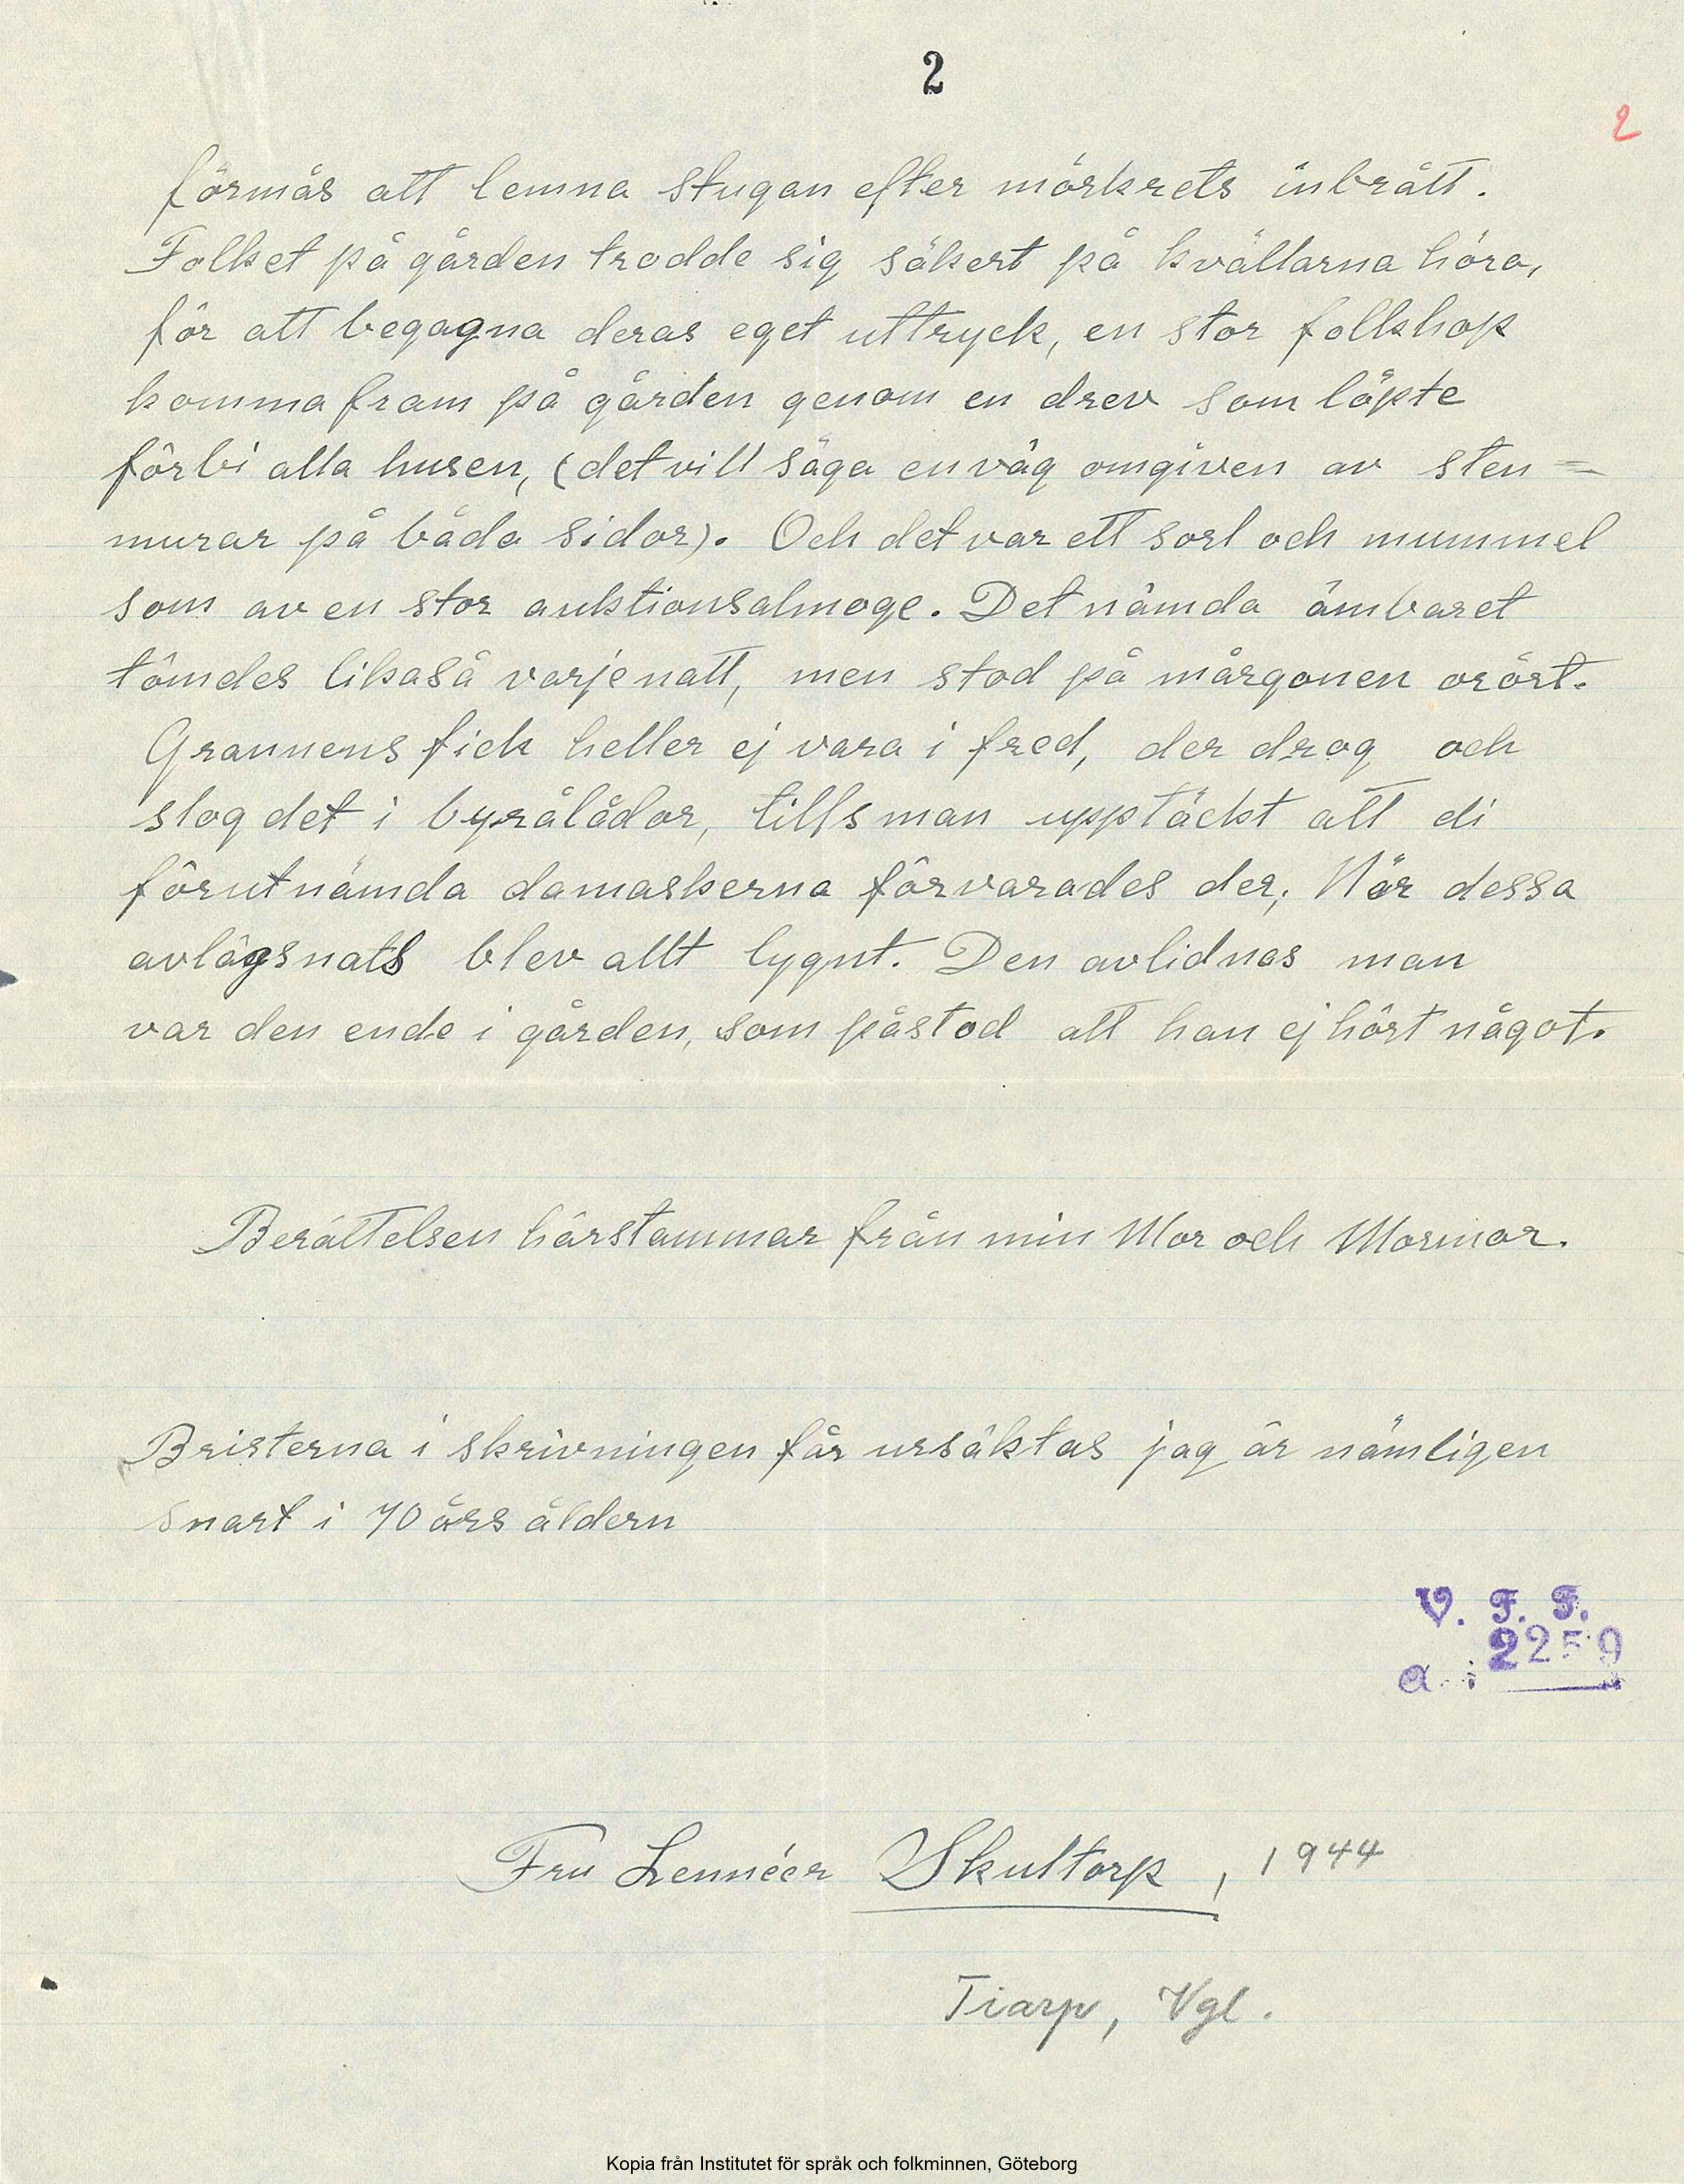 2
2
förmås att lemna stugan efter mörkrets inbrått.
Folket på gården trodde sig säkert på kvällarna höra,
för att begagna deras eget uttryck, en stor folkhop
komma fram på gården genom en drev som löpte
förbi alla husen, (det vill säga en väg omgiven av sten=
murar på båda sidor). Och det var ett sorl och mummel
som av en stor auktionsalmoge. Det nämda ämbaret
tömdes likaså varje natt, men stod på mårgonen orört.
Grannens fick heller ej vara i fred, der drog och
slog det i byrålådor, tills man upptäckt att di
förutnämda damaskerna förvarades der; När dessa
avlägsnats blev allt lygnt. Den avlidnas man
var den ende i gården, som påstod att han ej hört något.
Berättelsen härstammar från min Mor och Mormor.
Bristerna i skrivningen får ursäktas jag är nämligen
snart i 70 års åldern
V. F. F.
2259
a. :
Fru Lennéer Skultorp, 1944
Tiarp, Vgl.
Kopia från Institutet för språk och folkminnen, Göteborg